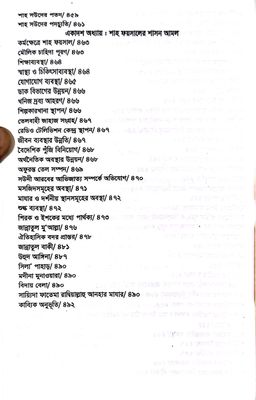 শাহ সউদের পতন/৪৫৯
শাহ সউদের পদচ্যুতি/৪৬১
একাদশ অধ্যায় : শাহ ফয়সালের শাসন আমল
কর্মক্ষেত্রে শাহ ফয়সাল/৪৬৩
মৌলিক চাহিদা পূরণ/৪৬৩
শিক্ষাব্যবস্থা/৪৬৪
স্বাস্থ্য ও চিকিৎসাব্যবস্থা/৪৬৪
যোগাযোগ ব্যবস্থা/৪৬৫
ডাক বিভাগের উন্নয়ন/৪৬৬
খনিজ দ্রব্য আহরণ/৪৬৬
শিল্পকারখানা স্থাপন/৪৬৬
তেলবাহী জাহাজ সংগ্রহ/৪৬৭
রেডিও টেলিভিশন কেন্দ্র স্থাপন/৪৬৭
জীবন ব্যবস্থার উন্নতি/৪৬৭
বৈদেশিক পুঁজি বিনিয়োগ/৪৬৮
অর্থনৈতিক অবস্থার উন্নয়ন/৪৬৮
অফুরন্ত তেল সম্পদ/৪৬৯
সউদী আরবের আভিজাত্য সম্পর্কে অভিযোগ/৪৭০
মসজিদসমূহের অবস্থা/৪৭১
মাযার ও দর্শনীয় স্থানসমূহের অবস্থা/৪৭২
শুল্ক ব্যবস্থা/৪৭২
শিরক ও ইশকের মধ্যে পার্থক্য/৪৭৩
জান্নাতুল মু'আল্লা/৪৭৩
ঐতিহাসিক বদর প্রান্তর/৪৭৮
জান্নাতুল বাকী/৪৮১
উহুদ আঙ্গিনা/৪৮৭
সিলা' পাহাড়/৪৯০
মদীনা মুনাওয়ারা/৪৯০
বিদায় বেলা/৪৯০
সায়্যিদা ফাতেমা রাযিয়াল্লাহু আনহার মাযার/৪৯০
কাব্যিক অনুভূতি/৪৯২